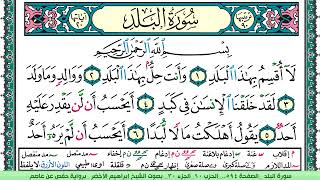 سُورَةُ ٱلْبَلَدِ
بِسْمِ ٱللَّهِ ٱلرَّحْمَٰنِ ٱلرَّحِيمِ
لَآ أُقْسِمُ بِهَٰذَا ٱلْبَلَدِ ١ وَأَنتَ حِلٌّۢ بِهَٰذَا ٱلْبَلَدِ ٢ وَوَالِدٍ وَمَا وَلَدَ
٣ لَقَدْ خَلَقْنَا ٱلْإِنسَٰنَ فِى كَبَدٍ ٤ أَيَحْسَبُ أَن لَّن يَقْدِرَ عَلَيْهِ
أَحَدٌ ٥ يَقُولُ أَهْلَكْتُ مَالًا لُّبَدًا ٦ أَيَحْسَبُ أَن لَّمْ يَرَهُۥٓ أَحَدٌ
سورة البلد الصفحة ٥٩٤ الجزء ٣٠ بصوت الشيخ إبراهيم الأخضر برواية حفص عن عاصم